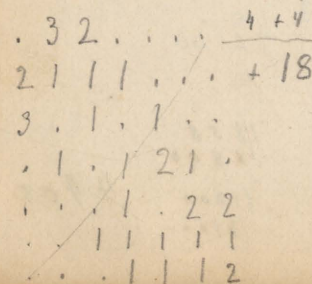 . 3 2 . . . . 4 + 4
2 1 1 1 . . . + 18
3 . 1 . 1 . .
. 1 . 1 2 1 .
. . . 1 . 2 2
. . 1 1 1 1 1
. . . 1 1 1 2